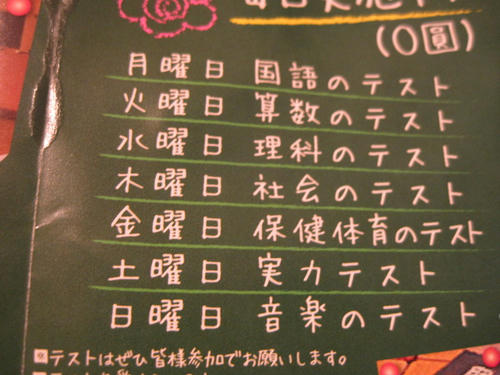 (0圓)
月曜日 国語のテスト
火曜日 算数のテスト
水曜日 理科のテスト
木曜日 社会のテスト
金曜日 保健体育のテスト
土曜日 実力テスト
日曜日 音楽のテスト
テストはぜひ皆様参加でお願いします。